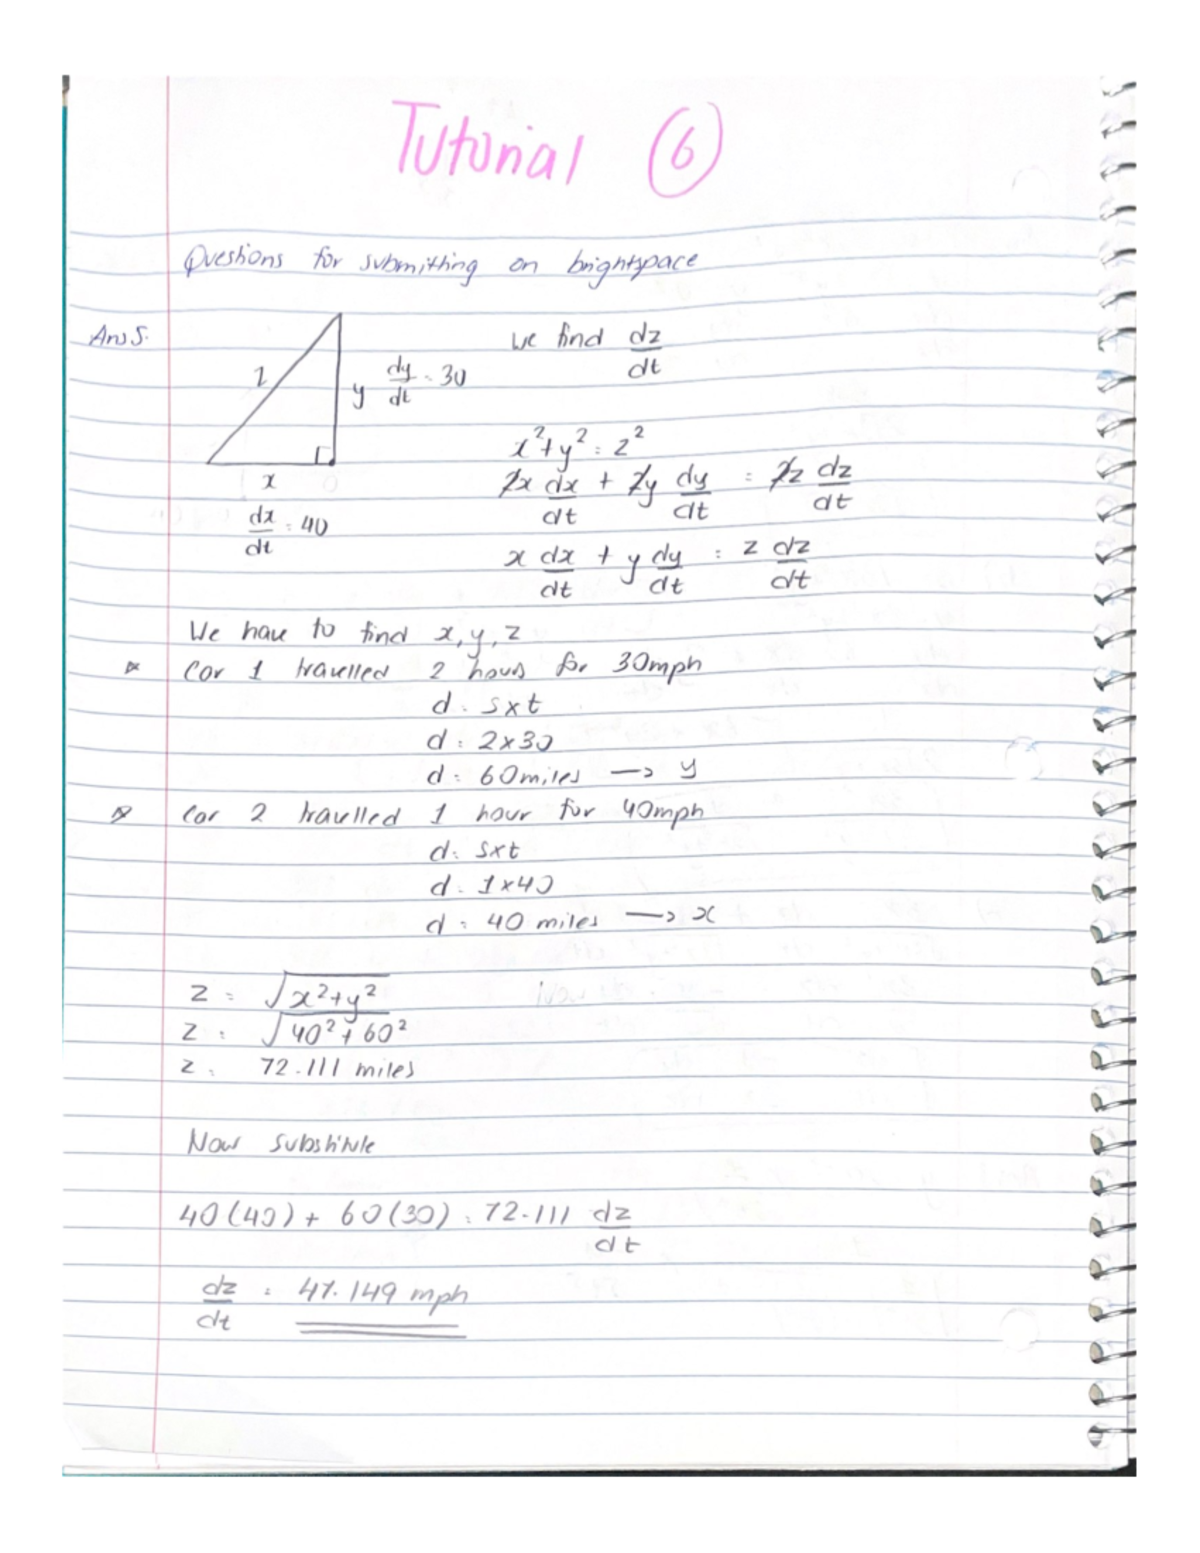 Tutorial 6
Questions for submitting on brightspace
Ans 5.
We find dz/dt
z
y dy/dt = 30
x
dx/dt = 40
x² + y² = z²
2x dx/dt + 2y dy/dt = 2z dz/dt
x dx/dt + y dy/dt = z dz/dt
We have to find x, y, z
Car 1 travelled 2 hours for 30mph
d = s x t
d = 2 x 30
d = 60 miles → y
Car 2 travlled 1 hour for 40mph
d = s x t
d = 1 x 40
d = 40 miles → x
z = √x² + y²
z = √40² + 60²
z = 72.111 miles
Now substitute
40(40) + 60(30) = 72.111 dz/dt
dz/dt = 47.149 mph